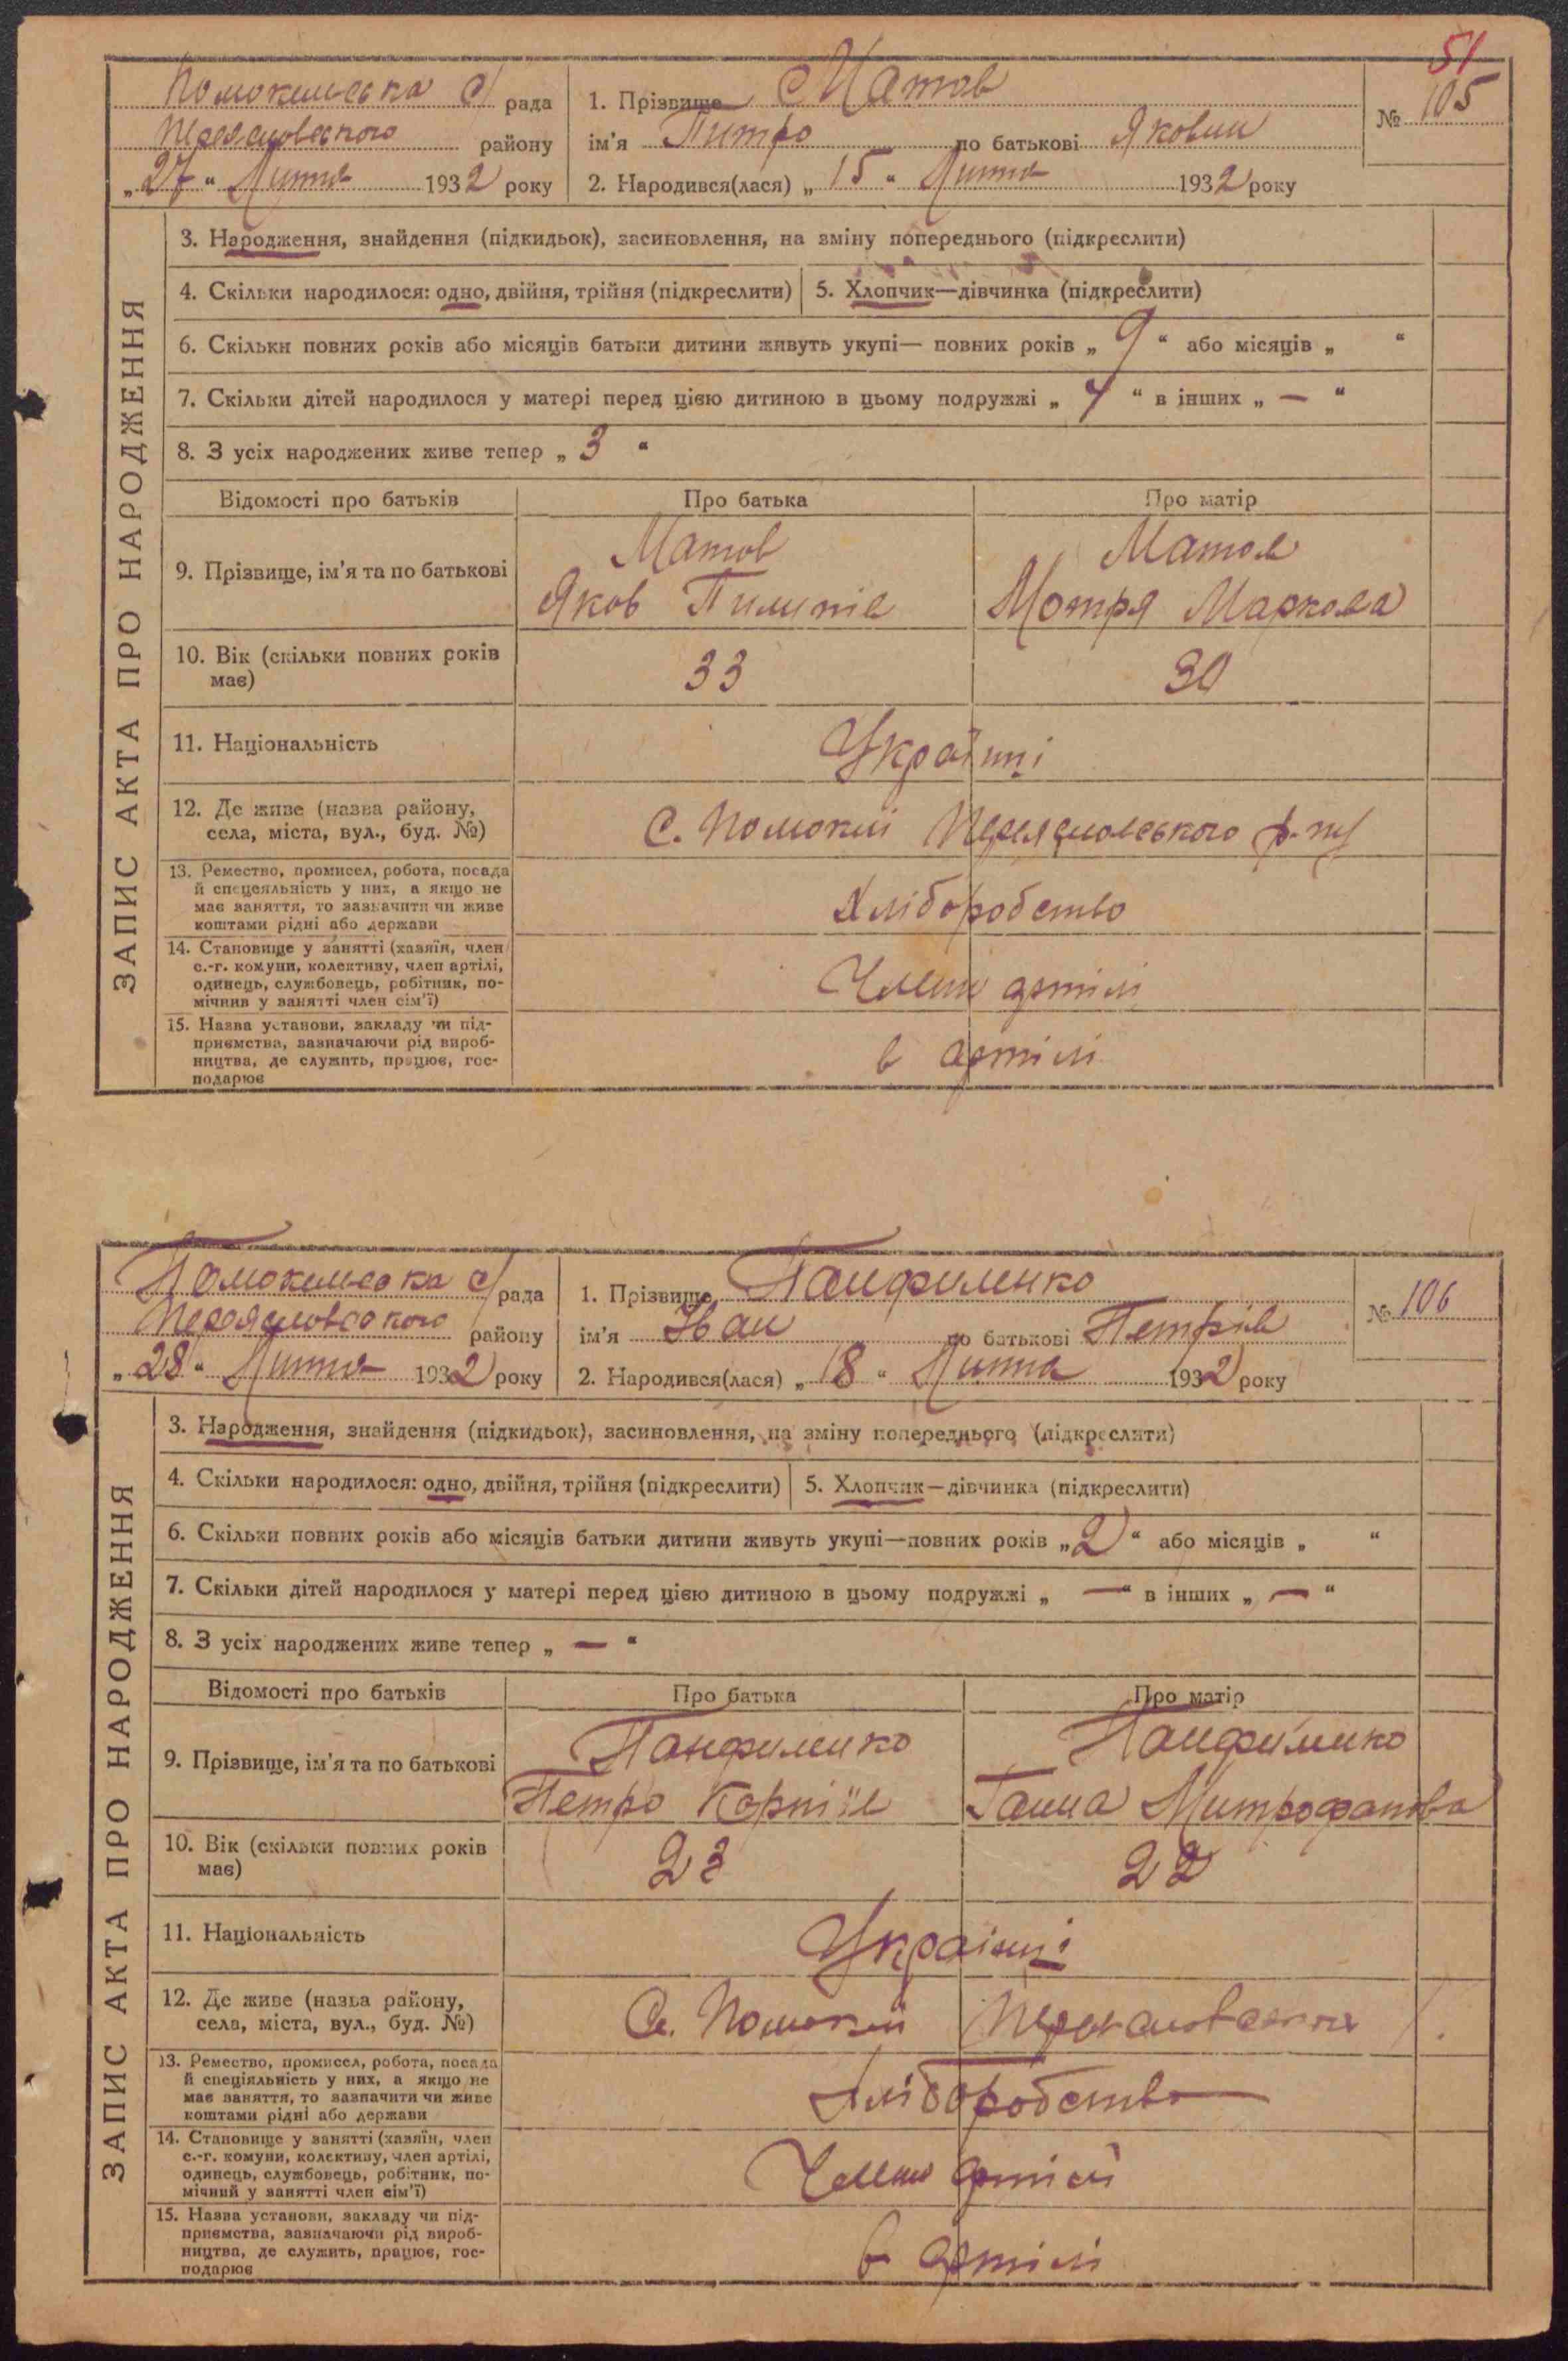 51
Помоклиська с/ рада
Переяславського району
„27“ Липня 1932 року
1. Прізвище Матов
ім'я Питро по батькові Якович
2. Народився(лася) „15“ Липня 1932 року
№ 105
ЗАПИС АКТА ПРО НАРОДЖЕННЯ
3. Народження, знайдення (підкидьок), засиновлення, на зміну попереднього (підкреслити)
4. Скільки народилося: одно, двійня, трійня (підкреслити) 5. Хлопчик—дівчинка (підкреслити)
6. Скільки повних років або місяців батьки дитини живуть укупі— повних років „ 9 “ або місяців „ “
7. Скільки дітей народилося у матері перед цією дитиною в цьому подружжі „ 4 “ в інших „ — “
8. З усіх народжених живе тепер „ 3 “
Відомості про батьків Про батька Про матір
9. Прізвище, ім'я та по батькові
Матов
Яков Пилипів
Матов
Мотря Маркова
10. Вік (скільки повних років
має)
33 30
11. Національність Українці
12. Де живе (назва району,
села, міста, вул., буд. №)
С. Помоклі Переяславського р-ну
13. Ремество, промисел, робота, посада
й спецеяльність у них, а якщо не
має заняття, то зазначити чи живе
коштами рідні або держави
Хліборобство
14. Становище у занятті (хазяїн, член
с.-г. комуни, колективу, член артілі,
одинець, службовець, робітник, по-
мічнив у занятті член сім'ї)
Члени артілі
15. Назва установи, закладу чи під-
приємства, зазначаючи рід вироб-
ництва, де служить, працює, гос-
подарює
в артілі
Помоклиська с/ рада
Переяславського району
„28“ Липня 1932 року
1. Прізвище Панфиленко
ім'я Іван по батькові Петрів
2. Народився(лася) „18“ Липня 1932 року
№ 106
ЗАПИС АКТА ПРО НАРОДЖЕННЯ
3. Народження, знайдення (підкидьок), засиновлення, на зміну попереднього (підкреслити)
4. Скільки народилося: одно, двійня, трійня (підкреслити) 5. Хлопчик—дівчинка (підкреслити)
6. Скільки повних років або місяців батьки дитини живуть укупі—повних років „ 2 “ або місяців „ “
7. Скільки дітей народилося у матері перед цією дитиною в цьому подружжі „ — “ в інших „ — “
8. З усіх народжених живе тепер „ — “
Відомості про батьків Про батька Про матір
9. Прізвище, ім'я та по батькові
Панфиленко
Петро Корніїв
Панфиленко
Ганна Митрофанова
10. Вік (скільки повних років
має)
23 22
11. Національність Українці
12. Де живе (назва району,
села, міста, вул., буд. №)
С. Помоклі Переяславського
13. Ремество, промисел, робота, посада
й спеціяльність у них, а якщо не
має заняття, то зазначити чи живе
коштами рідні або держави
Хліборобство
14. Становище у занятті (хазяїн, член
с.-г. комуни, колективу, член артілі,
одинець, службовець, робітник, по-
мічний у занятті член сім'ї)
Члени артілі
15. Назва установи, закладу чи під-
приємства, зазначаючи рід вироб-
ництва, де служить, працює, гос-
подарює
в артілі